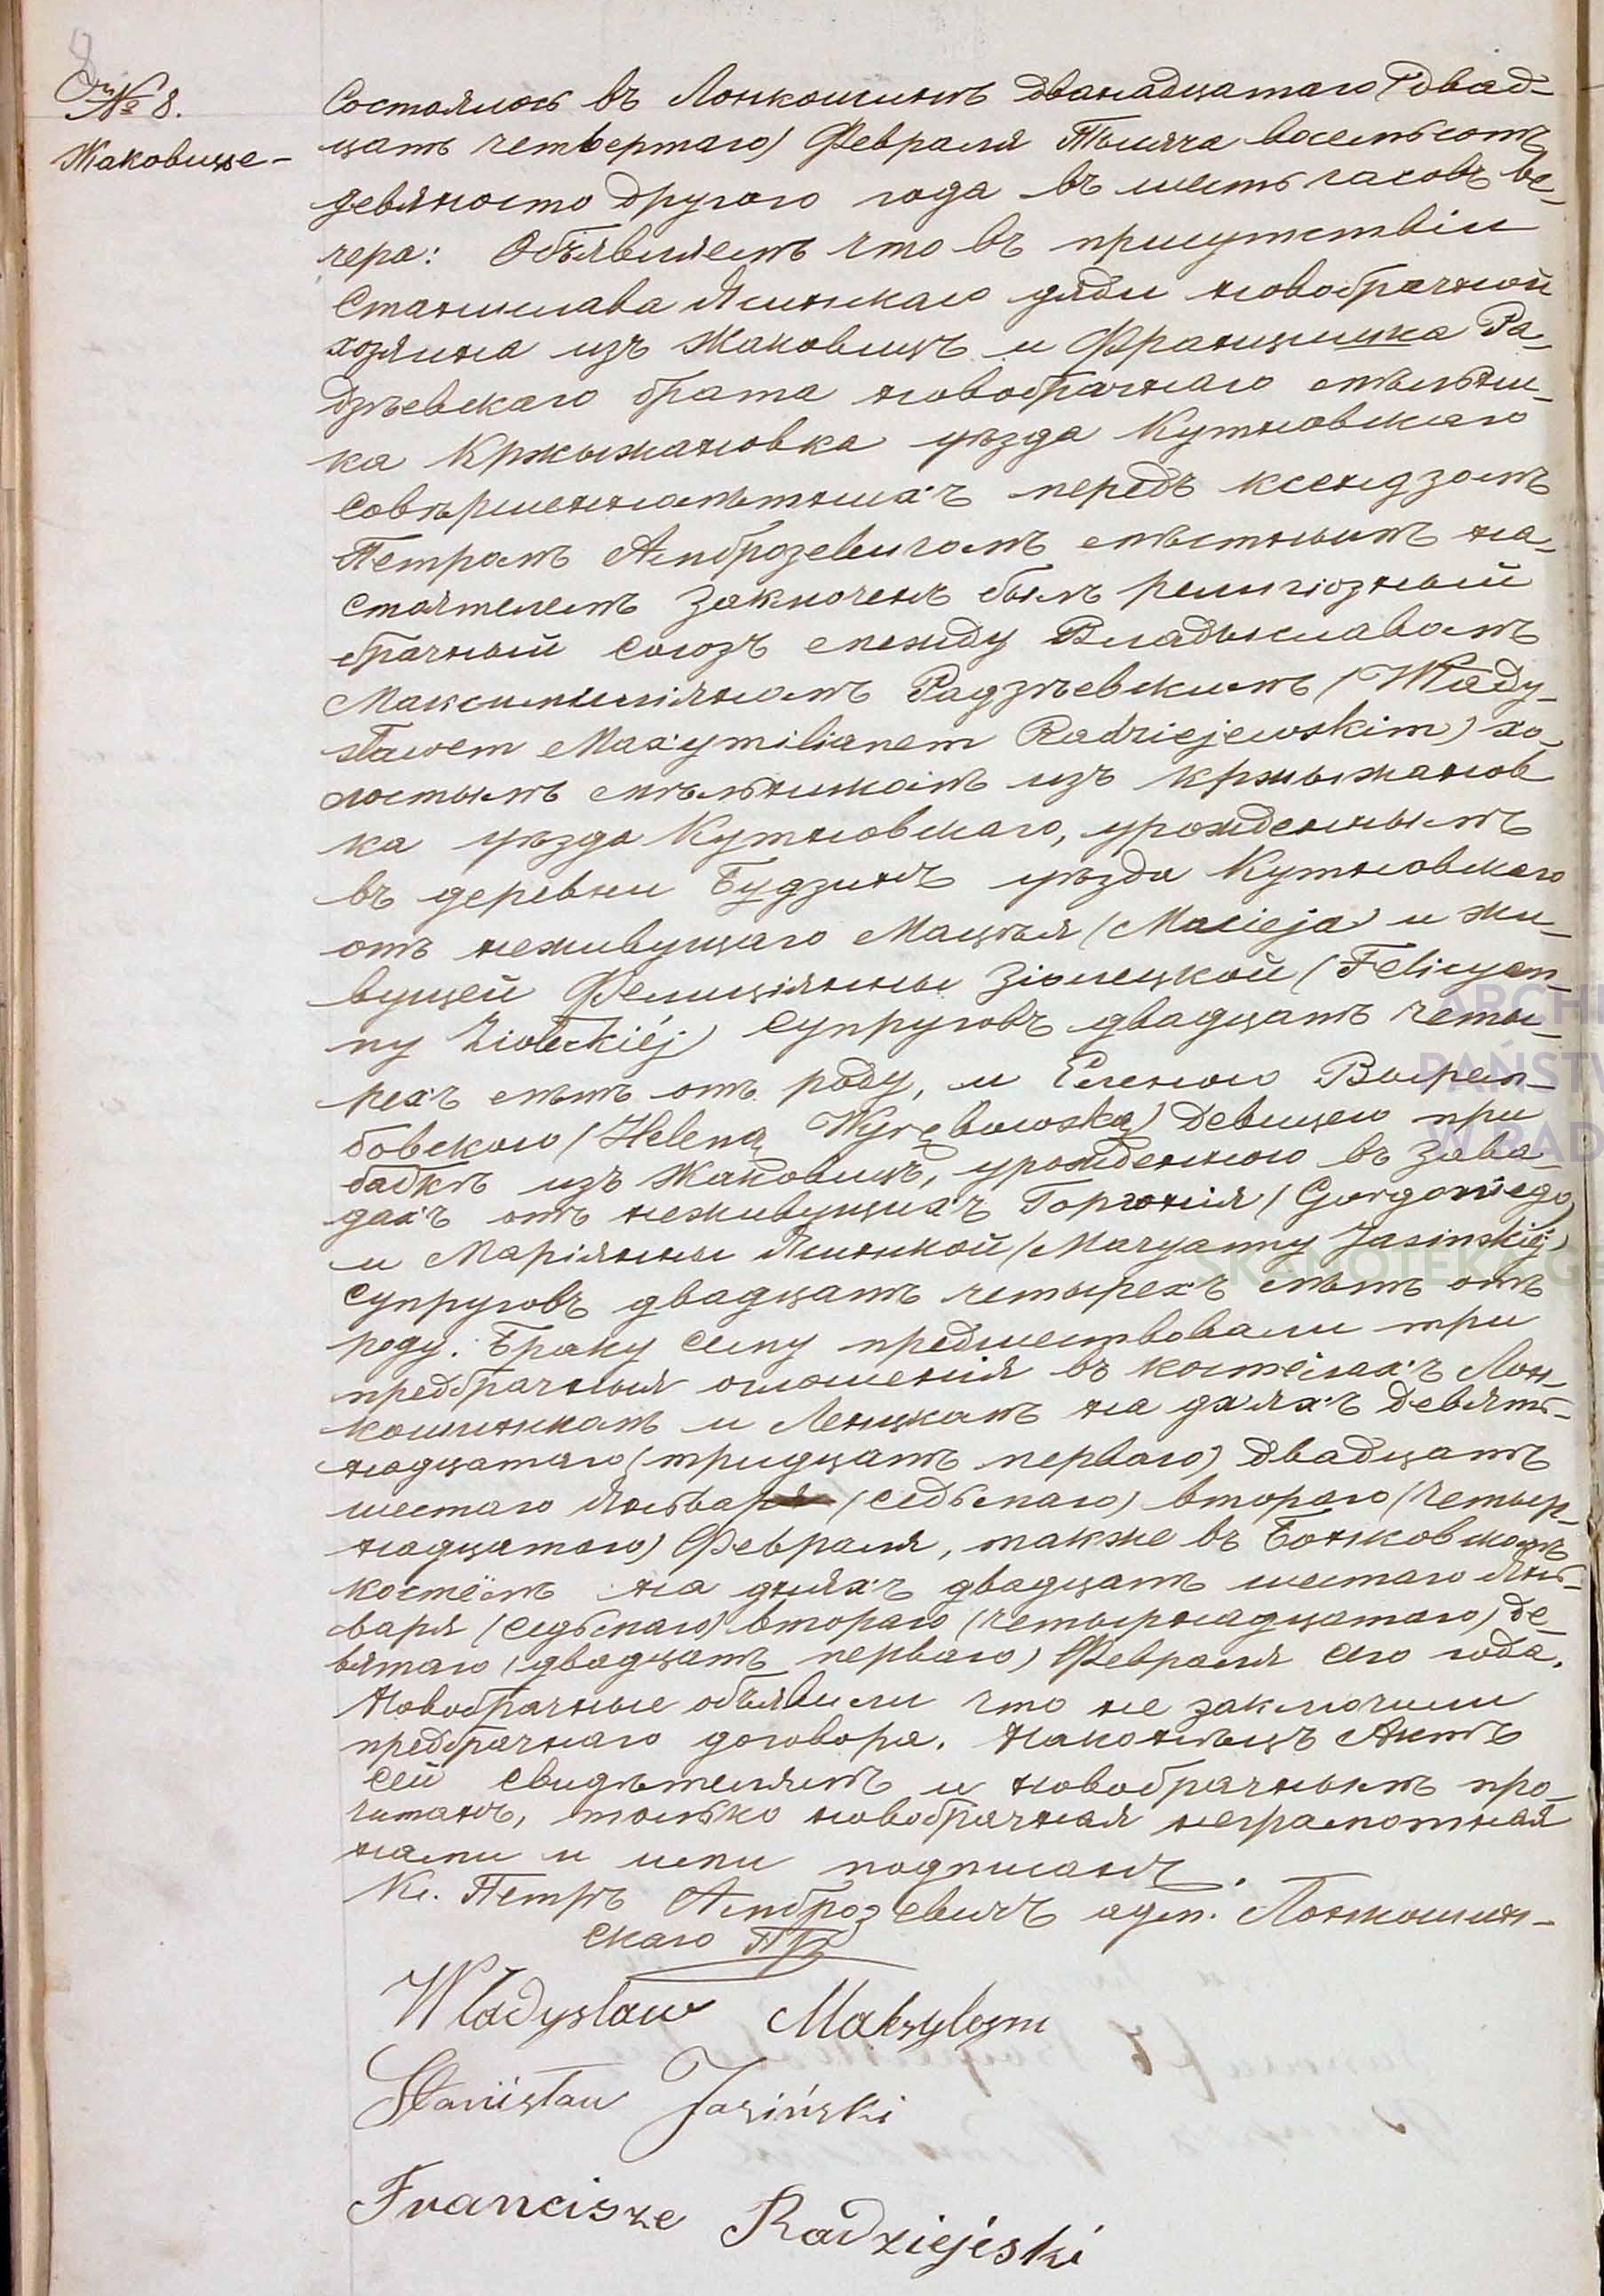 № 8.
Жаковице-
Состоялось въ Лонкошинѣ двѣнадцатаго (двад-
цать четвертаго) Февраля Тысяча восемьсотъ
девяносто другого года въ шесть часовъ ве-
чера: Объявляемъ что въ присутствіи
Станислава Ясинскаго дяди новобрачной
хозяина изъ Жаковицъ и Францишка Ра-
дзѣевскаго брата новобрачнаго мѣльни-
ка Кржыжановка уѣзда Кутновскаго
совѣршеннолѣтнихъ передъ ксендзомъ
Петромъ Амброзевичомъ мѣстнымъ на-
стоятелемъ заключенъ былъ религіозный
брачный союзъ между Владыславомъ
Максимиліяномъ Радзѣевскимъ (Włady-
sławem Maxymilianem Radziejewskim) хо-
лостымъ мѣльникомъ изъ Кржыжанов
ка уѣзда Кутновскаго, урожденнымъ
въ деревни Будзинъ уѣзда Кутновскаго
отъ неживущаго Мацѣя (Macieja) и жи-
вущей Фелиціянны Зіолецкой (Felicyan-
ny Ziołeckiéj) супруговъ двадцать четы-
рехъ лѣтъ отъ роду, и Еленою Вырем-
бовскою (Heleną Wyrębowską) девицею при
бабкѣ изъ Жаковицъ, урожденною въ Зава-
дахъ отъ неживущихъ Горгонія (Gorgoniego)
и Маріянны Ясинской (Maryanny Jasinskiéj)
супруговъ двадцать четырехъ лѣтъ отъ
роду. Браку сему предшествовали три
предбрачныя оглошенія въ костёлахъ Лон-
кошинскомъ и Ленцкомъ на дняхъ девят-
надцатаго (тридцать перваго) двадцать
шестаго Января (седьмаго) втораго (четыр-
надцатаго) Февраля, также въ Бонковскомъ
костёлѣ на дняхъ двадцать шестаго Янь-
варя (седьмаго) втораго (четырнадцатаго) де-
вятаго (двадцать перваго) Февраля сего года.
Новобрачные объявили что не заключили
предбрачнаго договора. Наконѣцъ Актъ
сей свидѣтелямъ и новобрачнымъ про-
читанъ, только новобрачная неграмотная
нами и ими подписанъ.
Кс. Петръ Амброзевичъ адм. Лонкошин-
скаго
Władysław Maksylegm
Stanisław Jasiński
Francisze Radziejeski